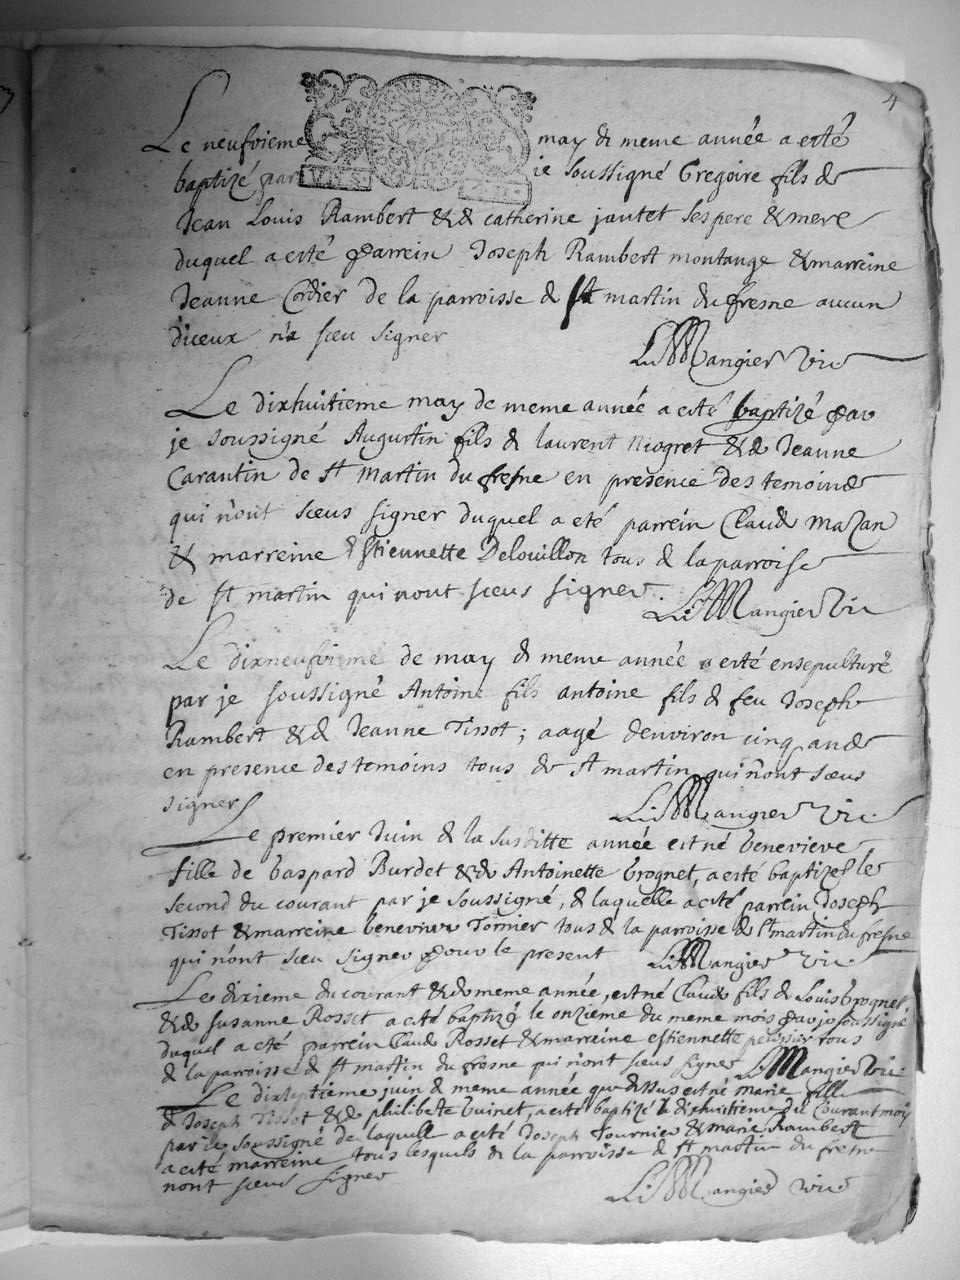 4
Le neufvieme may de meme année a esté
baptizé par je soussigné Gregoire fils de
Jean Louis Rambert & de catherine jautet ses pere & mere
duquel a esté parrein Joseph Rambert montange & marreine
Jeanne Cordier de la parroisse de st martin du fresne aucun
diceux n'a sceu signer
Mangier vic
Le dixhuitieme may de meme année a esté baptizé par
je soussigné Augustin fils de laurent niogret & de Jeanne
Carantin de st martin du fresne en presence des temoins
qui n'ont sceus signer duquel a eté parrein Claude mazan
& marreine Estiennette Delouillon tous de la parroisse
de st martin qui nont sceus signer. Mangier vic
Le dixneufvieme de may de meme année a esté ensepulturé
par je soussigné Antoine fils antoine fils de feu Joseph
Rambert & de Jeanne Tissot; aagé denviron cinq ans
en presence des temoins tous de st martin qui n'ont sceus
signer Mangier vic.
Le premier Juin de la susditte année est né Genevieve
fille de Gaspard Burdet & de Antoinette Grognet, a esté baptizé le
second du courant par je soussigné, de laquelle a esté parrein Joseph
Tissot & marreine Tornier tous de la parroisse de st martin du fresne
qui n'ont sceu signer pour le present Mangier vic.
Le dixieme du courant & de meme année, est né Claude fils de Louis Grognet
& de Susanne Rosset a esté baptizé le onzieme du meme mois par je soussigné
duquel a eté parrein Claude Rosset & marreine estiennette tous
de la parroisse de st martin du fresne qui n'ont sceus signer Mangier vic.
Le dixseptieme juin de meme année que dessus est né marie fille
de Joseph Tissot & de philiberte Guinet, a esté baptizé le dixhuitieme du Courant mois
par je soussigné de laquelle a esté Joseph Tournier & marie Rambert
a esté marreine tous lesquels de la parroisse de st martin du fresne
nont sceus signer Mangier vic